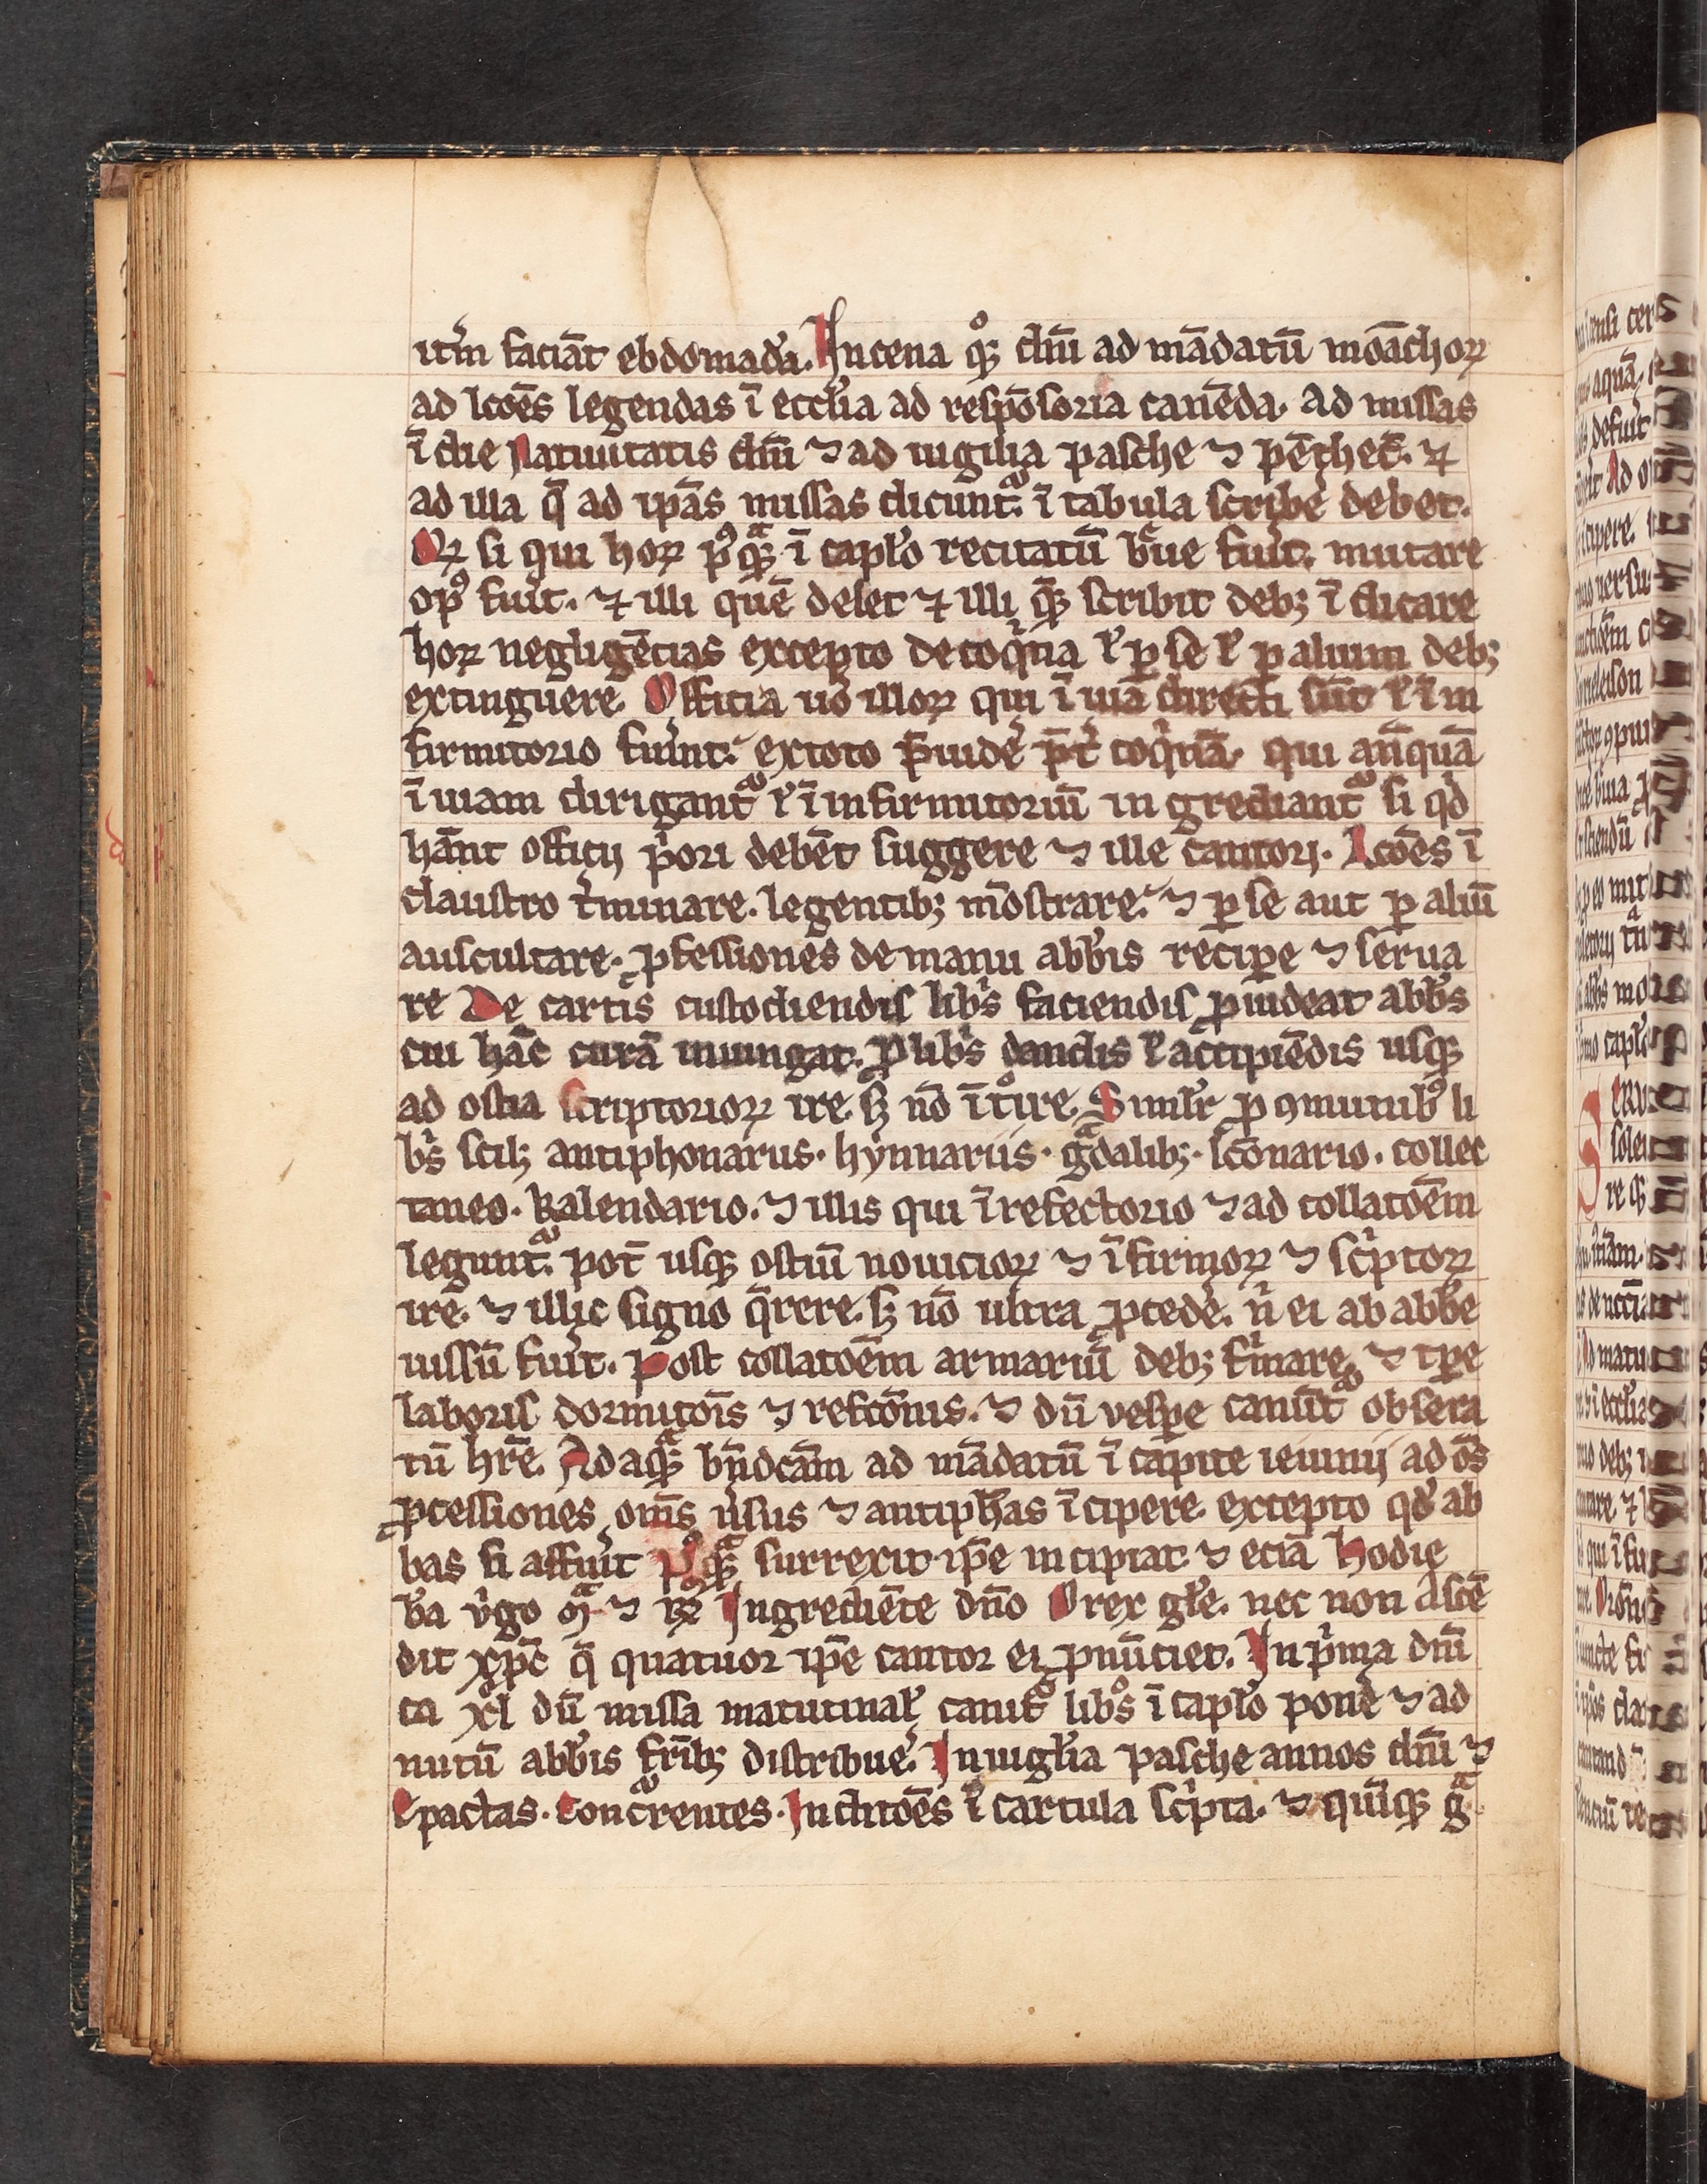 it̄m faciāt ebdomadā. In cena qͦꝫ dn̄i ad mādatū moāchoꝝ
ad lcōes legendas ī eccl̄ia ad respōsoria canēda. ad missas
ī die Natiuitatis dn̄i ⁊ ad uigilia pasche ⁊ pēthec̄. ⁊
ad illa q̄ ad ip̄as missas dicunt᷑. ī tabula scribe̾ debet.
Qꝫ si qui hoꝝ pꝰqᷓꝫ ī capl̄o recitatū bͬue fu̾it. mutare
opꝰ fu̾it. ⁊ illi quē delet ⁊ illi qᷓꝫ scribit debꝫ īdicare
hoꝝ negligētias excepto de coqͥna ł ꝑ se ł ꝑ alium debꝫ
extinguere. Officia uo̾ illoꝝ qui ī uiā directi sūt ł ī in
firmitorio fu̾int. ex toto p̄uide̾ p̄t̾ coqͥnā. qui an̄quā
ī uiam dirigant᷑ ł ī infirmitoriū ingrediant᷑ si qͥd
hn̄t officij pͥori debēt suggere ⁊ ille cantori. Lcōes ī
claustro t̾minare. legentibꝫ mōstrare. ⁊ ꝑ se aut ꝑ aliū
auscultare. ꝓfessiones de manu abb̄is recipe ⁊ serua
re De cartis custodiendis libͥs faciendis ꝓuideat abb̄s
cui hāc curā iniungat. Pro libͥs dandis ł accipiēdis usqꝫ
ad ostia scriptorioꝝ ire. sꝫ nō ītͦire. Simil̄r ꝓ ꝯmunibꝰ li
bͥs scilꝫ antiphonariis. hymnariis. gᷓdalibꝫ. lcōnario. collec
taneo. Kalendario. ⁊ illis qui ī refectorio ⁊ ad collatōem
legunt᷑. pot̄ usqꝫ ostiū nouicioꝝ ⁊ īfirmoꝝ ⁊ scͥptoꝝ
ire. ⁊ illic signo q̄rere. sꝫ nō ultra ꝓcede̾. n̾ ei ab abb̄e
iussū fu̾it. Post collatōem armariū debꝫ fͥmare. ⁊ tꝑe
laboris dormitōis ⁊ refcōnis. ⁊ dū vesꝑe canūt᷑ obsera
tū hr̄e. Ad aqᷓꝫ bn̄dcām ad mādatū ī capite ieiunij ad oēs
ꝓcessiones om̄s u̾sus ⁊ antiph̄as īcipere. excepto qd̾ ab
bas si affu̾it pꝰqᷓꝫ surrexit. ip̄e incipiat ⁊ eciā Hodie
b̄a v̾go mᷓ. ⁊ ℟ Ingrediēte dn̄o O rex gl̄e. nec non Ascē
dit xp̄c q̄ quatuor ip̄e cantor ei pnūciet. In pͥma dn̄i
ca xl̄ dū missa matutinal̄ canit᷑ libͦs ī capl̄o pone̾ ⁊ ad
nutū abb̄is fr̄ibꝫ distribue̾. In uigl̄ia pasche annos dn̄i ⁊
Epactas. Concͬrentes. Indictōes ī cartula scͥpta. ⁊ quīqꝫ gᷓ